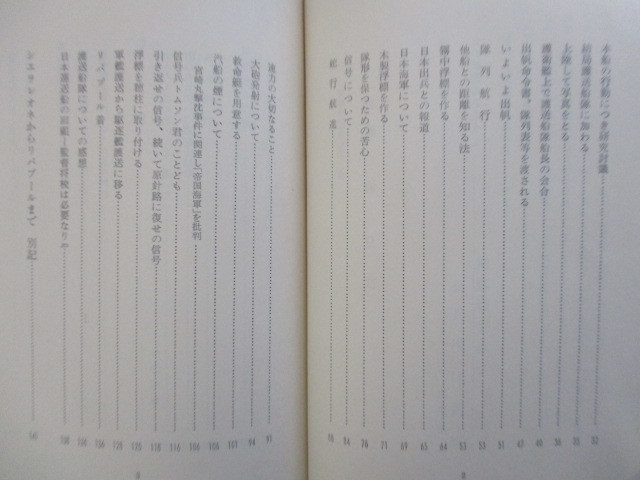 本船の行動につき研究討議 32
結局護送船隊に加わる
上陸して写真をとる 36
護衛艦上で護送船隊船長の会合
出帆命令書、隊列表等を渡される 47
いよいよ出帆 51
隊列航行 53
他船との距離を知る法 53
霧中浮標を作る 64
日本出兵との報道 65
日本海軍について 69
木製浮標を作る 71
隊形を保つための苦心 76
信号について 84
航行航過
速力の大切なること 91
大砲発射について 94
救命艇を用意する 101
汽船の煙について 104
宮崎丸撃沈事件に関連し「帝国海軍」を批判 106
信号兵トムソン君のことども 116
引き返せの信号、続いて原針路に復せの信号 118
浮標を檣枝に取り付ける 125
軍艦護送から駆逐艦護送に移る
リバプール着
護送船隊についての感想
日本護送船の回顧—監督将校は必要なりや
シエラレオネからリバプールまで 別記